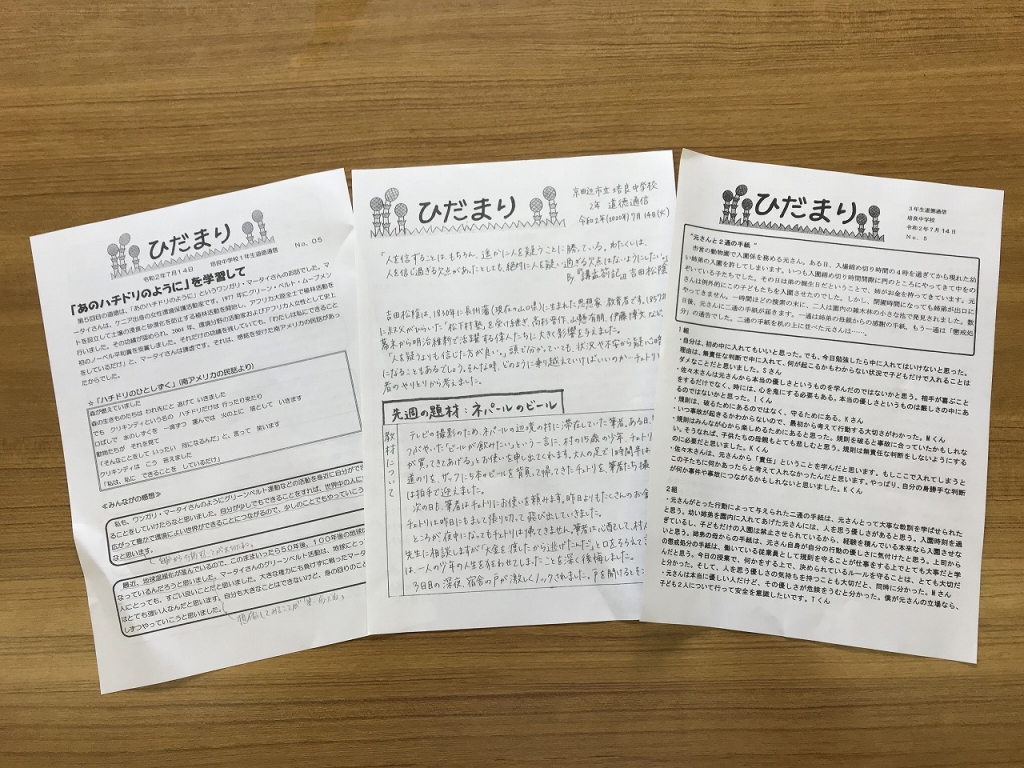 ひだまり
No. 05
令和２年７月１４日
培良中学校１年生道徳通信
「あのハチドリのように」を学習して
第５回目の道徳は、「あのハチドリのように」というワンガリ・マータイさんのお話でした。マ
ータイさんは、ケニア出身の女性環境保護活動家です。1977 年にグリーン・ベルト・ムーブメン
トを設立して土壌の浸食と砂漠化を防止する植林活動を開始し、アフリカ大陸全土で植林活動を
行いました。その功績が認められ、2004 年、環境分野の活動家およびアフリカ人女性として史上
初のノーベル平和賞を受賞しました。それだけの功績を残していても、「わたしは私にできること
をしているだけ」と、マータイさんは謙虚です。それは、感銘を受けた南アメリカの民話があっ
たからでした。
☆「ハチドリのひとしずく」（南アメリカの民話より）
森が燃えていました
森の生きものたちは われ先にと 逃げて いきました
でも クリキンディというもの ハチドリだけは 行ったり来たり
口ばしで 水のしずくを 一滴ずつ 運んでは 火の上に 落として いきます
動物たちが それを見て
「そんなことをして いったい 何になるんだ」と、言って 笑います
クリキンディは こう 答えました
「私は、私に できることを しているだけ」
≪みんなの感想≫
私も、ワンガリ・マータイさんのようにグリーンベルト運動などの活動を身近に自分ができ
ることをしていけたらなと思いました。自分が少しでもできることをすれば、世界中の人に
広がって豊かで環境によい世界ができることにつながるので、少しのことでもやっていこう
なと思います。
最近、地球温暖化が進んでいるので、このままいったら５０年後、１００年後の地球は
なっているんだろうと思いました。マータイさんのグリーンベルト活動は、地球にとっ
人にとっても、すごい良いことだと思いました。大きな権力にも負けずに戦ったマータ
はとても強い人なんだと思います。自分も大きなことはできないけど、身の回りのこと
しずつやっていこうと思いました。
ひだまり
京田辺市立培良中学校
２年 道徳通信
令和２年(2020年)７月１４日(火)
「人を信ずることは、もちろん、遥かに人を疑うことに勝っている。わたくしは、
人を信じ過ぎる欠点があったとしても、絶対に人を疑い過ぎる欠点はないようにしたい。」
by 『講孟箚記』吉田松陰
吉田松陰は、1830年に長州藩(現在の山口県)に生まれた思想家・教育者です。1857年
に叔父がひらいた「松下村塾」を受け継ぎ、高杉晋作、山縣有朋、伊藤博文など、
幕末から明治維新で活躍する偉人たちに大きく影響を与えました。
「人を疑うよりも信じた方が良い」。頭で分かっていても、状況や不安から疑心暗鬼
になることもあるでしょう。そんな時、どのように乗り越えていけばいいのか…チョトリと
者のやりとりから考えました。
先週の題材：ネパールのビール
教材について
テレビの撮影のため、ネパールの辺境の村に滞在していた筆者。ある日、
つぶやいた「ビールが飲みたい」という一言に、村の15歳の少年、チョトリが
が買ってきてあげる」とお使いを申し出てくれます。大人の足で1時間半は
道のりを、ザックに5本のビールを背負って帰ってきたチョトリを、筆者たち撮
は拍手で迎えました。
次の日も、筆者はチョトリにお使いを頼みます。昨日よりもたくさんのお金
チョトリは昨日にもまして張り切って飛び出していきました。
ところが、夜中になってもチョトリは帰ってきません。筆者は心配して、村人
先生に相談しますが「大金を渡したから逃げたんだ」と口をそろえて言
は、一人の少年の人生を狂わせてしまったことを深く後悔しました。
3日目の深夜、宿舎の戸が激しくノックされました。戸を開けるとそ
ひだまり
３年生道徳通信
培良中学校
令和２年７月１４日
No. ５
“元さんと２通の手紙 ”
市営の動物園で入園係を務める元さん。ある日、入場締め切り時間の４時を過ぎてから現れた幼
い姉弟の入園を許してしまいます。いつも入園締め切り時間間際に門のところにやってきて中をの
ぞいている子たちでした。その日は弟の誕生日だということで、姉がお金を持ってきています。元
さんは例外的にこの子どもたちを入園させたのでした。しかし、閉園時間になっても姉弟が出口に
やってきません。一時間ほどの捜索の末に、二人は園内の雑木林の小さな池で発見されました。数
日後、元さんに二通の手紙が届きます。一通は姉弟の母親からの感謝の手紙、もう一通は「懲戒処
分」の通告でした。二通の手紙を机の上に並べた元さんは……
１組
・自分は、初め中に入れてもいいと思った。でも、今日勉強したら中に入れてはいけないと思った。
理由は、無責任な判断で中に入れて、何が起こるかもわからない状況で子どもだけで入れることは
ダメなことだと思いました。Ｓさん
・佐々木さんは元さんから本当の優しさというものを学んだのではないかと思う。相手が喜ぶこと
をするだけでなく、時には、心を鬼にする必要もある。本当の優しさというものは厳しさの中にあ
るのではないかと思った。Ｉくん
・規則は、破るためにあるのではなく、守るためにある。Ｋさん
・いつ事故が起きるかわからないので、最初から考えて行動する大切さがわかった。Ｍくん
・規則はみんなが心から楽しめるためにあると思った。規則を破ると事故に合っていたかもしれな
い。そうなれば、子供たちの母親もとても悲しむと思う。規則は無責任な判断をしないようにする
のに必要だと思いました。Ｋくん
・佐々木さんは、元さんから「責任」ということを学んだと思います。もしここで入れてしまうと
この子たちに何かあったらと考えて入れなかったんだと思います。やっぱり、自分の身勝手な判断
が何か事件や事故につながるかもしれないと思いました。Ｋくん
２組
・元さんがとった行動によって与えられた二通の手紙は、元さんとって大事な教訓を学ばせられた
と思う。幼い姉弟を園内に入れてあげた元さんには、人を思う優しさがあると思う。入園時刻を過
ぎているし、子どもだけの入園は禁止させられているから、経験を積んでいる本来なら入園させな
いと思う。姉弟の母からの手紙は、元さん自身が自分の行動の優しさに気付けたと思うし、上司から
の懲戒処分の手紙は、働いている従業員として規則を守ることが仕事をする上でとても大事だと学
んだと思う。今日の授業で、何かをする上で、決められているルールを守ることは、とても大切だ
と分かった。そして、人を思う優しさの気持ちを持つことも大切だと、同時に分かった。Ｍさん
・元さんは本当に優しい人だけど、その優しさが危険をうむと分かった。僕が元さんの立場なら、
子ども２人について行って安全を意識したいです。Ｔくん